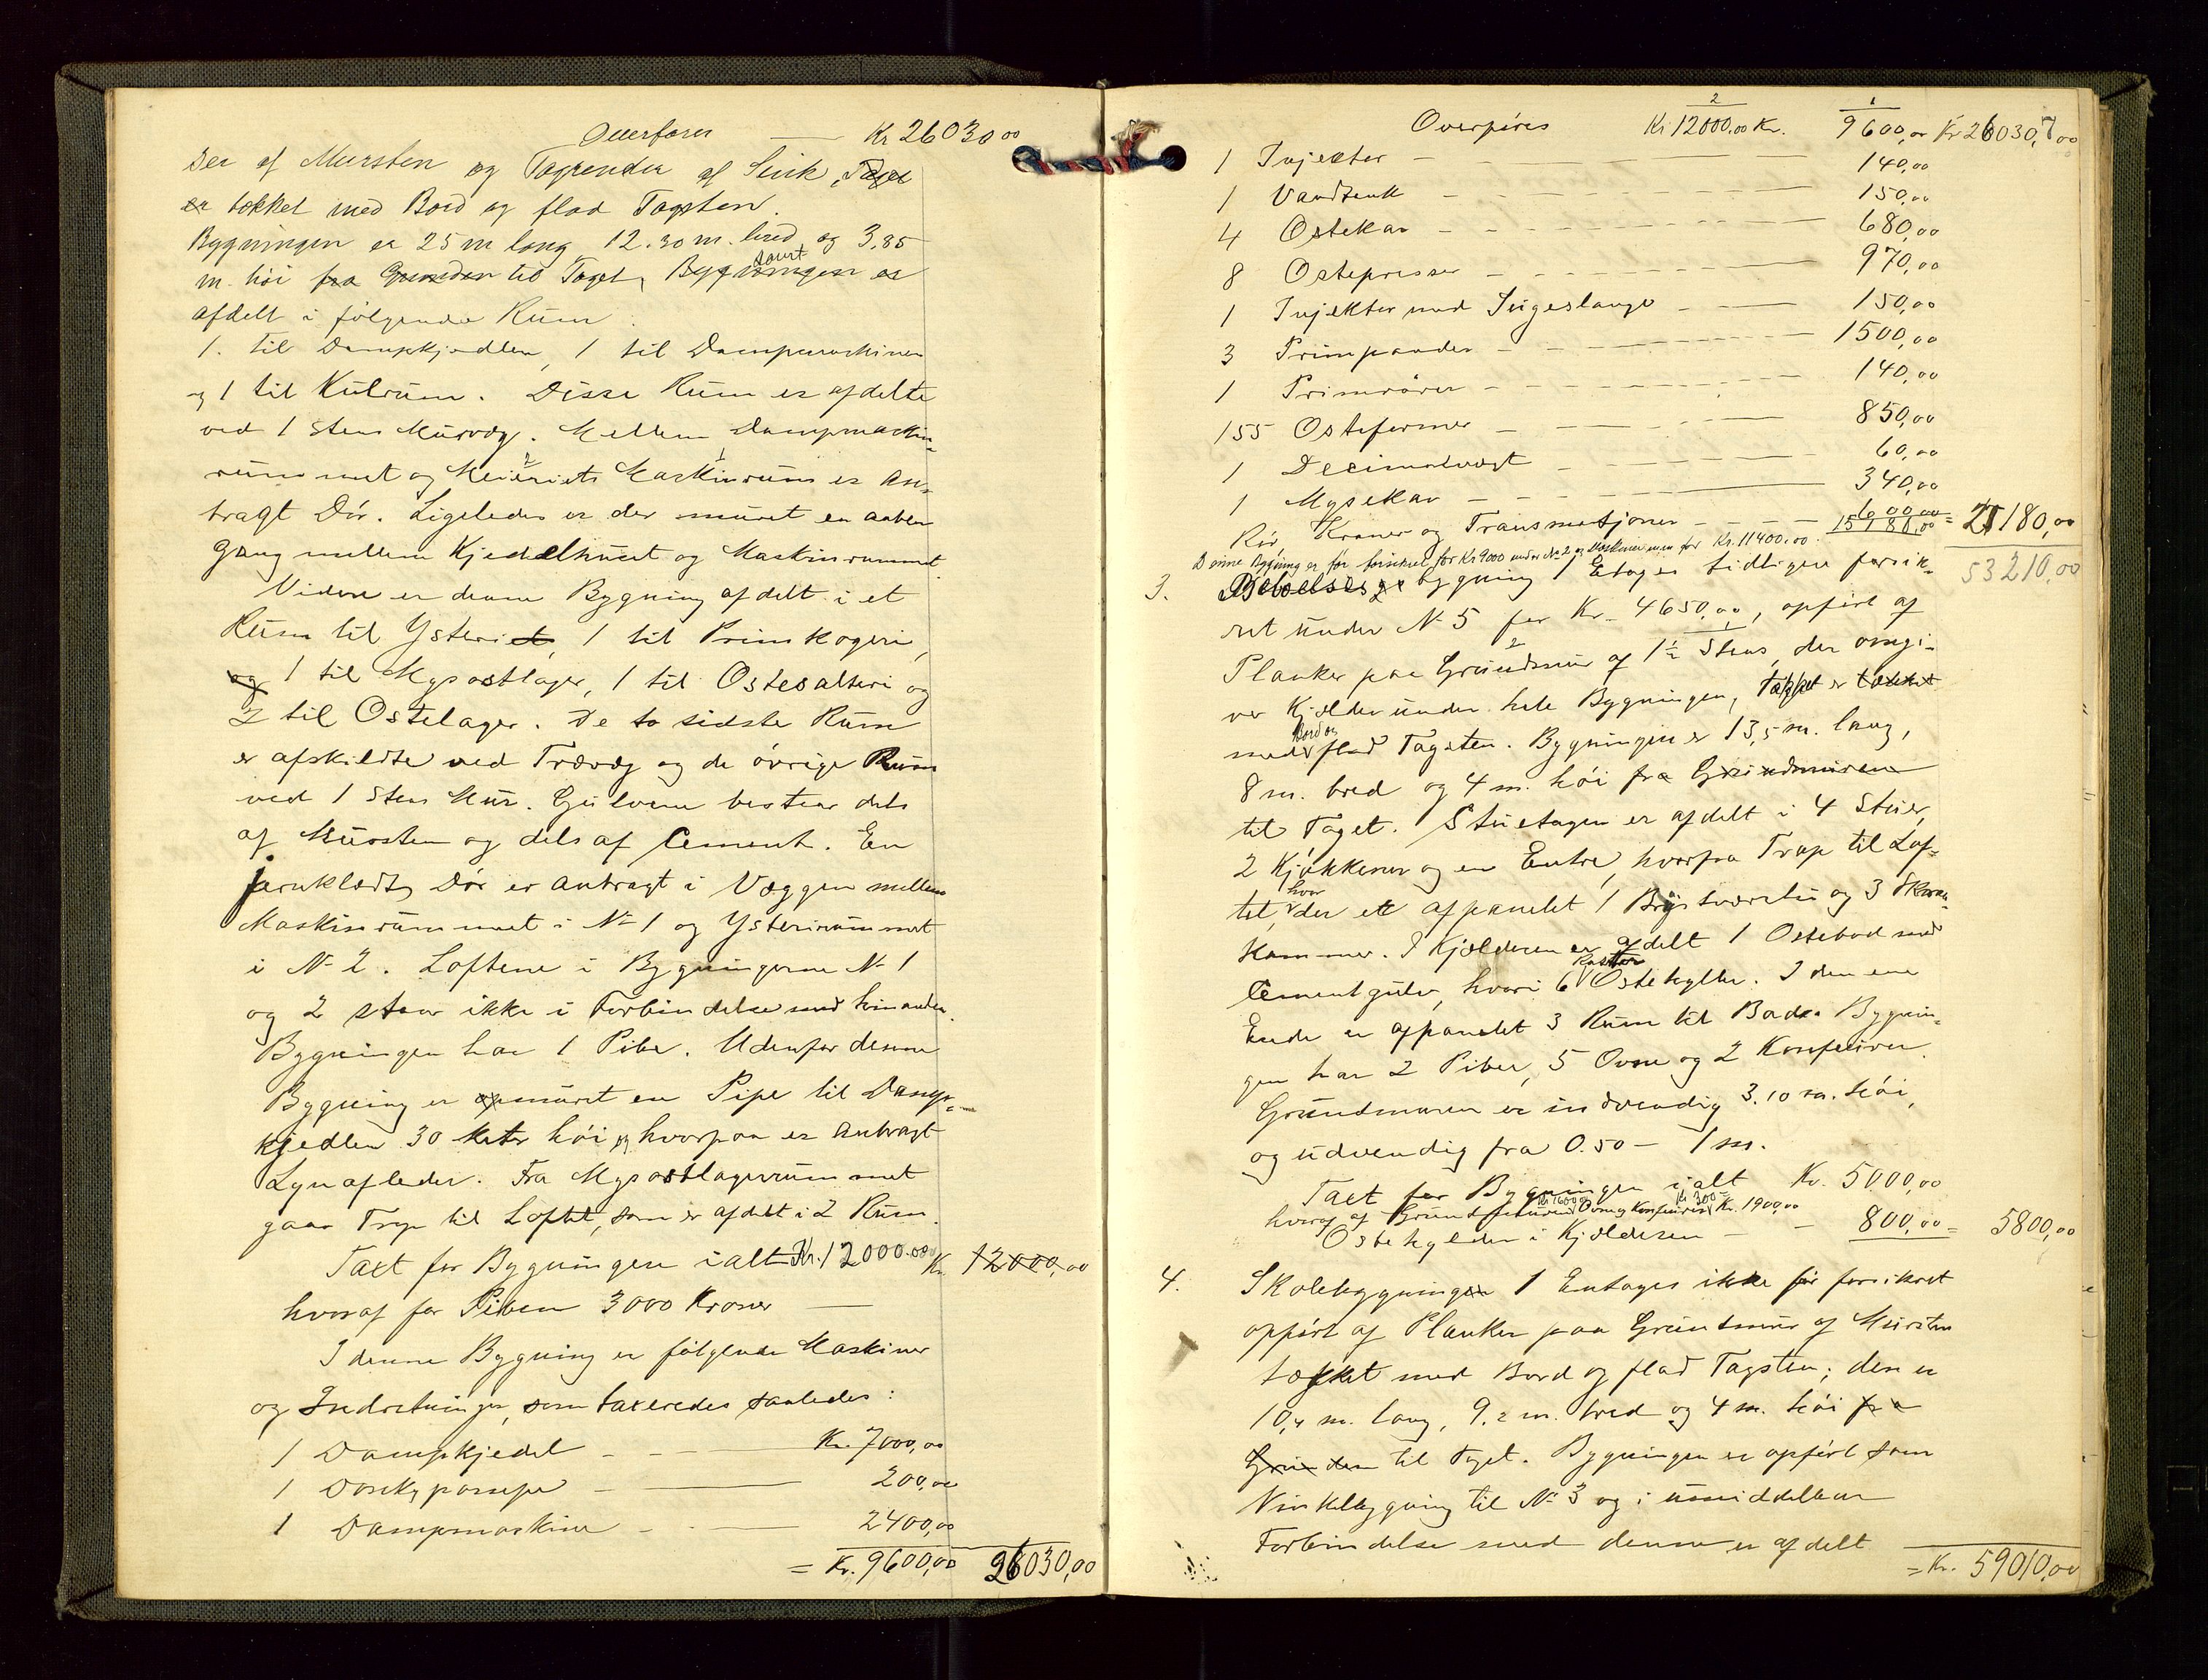 Overføres — Kr 26030 00
der af Mursten og Tagrender af Sink, Taget
er tækket med Bord og flad Tagsten.
Bygningen er 25 m lang, 12.30 m. bred, og 3,85
m. høi fra Grunden til Taget, Bygningen er
samt
afdelt i følgende Rum:
1. til Dampkjedlen, 1 til Dampmaskinen
og 1 til Kulrum. Disse Rum er afdelte
ved 1 Stens Murvæg. Mellem Dampmaskin-
rummet og Meieriets Maskinrum er an-
bragt Dør. Ligeledes er der muret en aaben
Gang mellem Kjedelhuset og Maskinrummet.
Videre er denne Bygning afdelt i et
Rum til Ysteriet, 1 til Primkogeri,
og 1 til Mysostlager, 1 til Ostesalteri og
2 til Ostelager. De to sidste Rum
er afskildte ved Trævæg og de øvrige Rum
ved 1 Stens Mur. Gulvene bestaar dels
af Mursten og dels af Cement. En
jernklædt Dør er anbragt i Væggen mellem
Maskinrummet i No 1 og Ysterirummet
i No 2. Loftene i Bygningerne No 1
og 2 staar ikke i Forbindelse med hinanden.
Bygningen har 1 Pibe. Udenfor denne
Bygning er opmuret en Pipe til Damp-
kjedlen 30 Meter høi og hvorpaa er anbragt
Lynafleder. Fra Mysostlagerrummet
gaar Trap til Loftet, som er afdelt i 2 Rum.
Taxt for Bygningen ialt Kr. 12000.00 Kr. 12000,00
hvoraf for Piben 3000 Kroner —
I denne Bygning er følgende Maskiner
og Indretninger, som taxeredes saaledes:
1 Dampkjedel — Kr. 7000,00
1 Donkypumpe — 200,00
1 Dampmaskine — 2400,00
= Kr. 9600,00 26030,00
2 1
Overføres Kr 12000.00 Kr. 9600,00 Kr 26030,00
1 Injektor — 140,00
1 Vandtank — 150,00
4 Ostekar — 680,00
8 Ostepresser — 970,00
1 Injektor med Sugeslange — 150,00
3 Primpander — 1500,00
1 Primrører — 140,00
155 Osteformer — 850,00
1 Decimalvægt — 60,00
1 Mysekar — 340,00
Rør, Kraner og Transmissjoner — 600,00
15180,00 = 27180,00
Denne Bygning er før forsikret for Kr 9000 under No 2 og Maskineriem for Kr. 11400.00.
53210,00
3. Beboelsesbygning 1 Etages tidligere forsik-
ret under No 5 for Kr. 4650,00, opført af
Planker paa Grundmur af 1½ Stens, der omgi-
ver Kjælder under hele Bygningen, Taget er tækket
Bord og
med flad Tagsten. Bygningen er 13,5 m. lang,
8 m. bred og 4 m. høi fra Grundmuren
til Taget. Stuetagen er afdelt i 4 Stuer,
2 Kjøkkener og en Entre, hvorfra Trap til Lof-
hvor
tet, der er afpanelet 1 Brystværstue og 3 Skraa-
kammer. I Kjælderen er afdelt 1 Ostebod med
Cementgulv, hvori 6 Ostehylder. I den ene
Ende er afpanelet 3 Rum til Bade. Bygnin-
gen har 2 Piber, 5 Ovne og 2 Komfurer.
Grundmuren er indvendig 3.10 m. høi,
og udvendig fra 0.50 — 1 m.
Taxt for Bygningen ialt Kr. 5000,00
Kr 1600,00 Kr 300
hvoraf Grundmuren Ovne og Komfurer Kr. 1900,00
Ostehylder i Kjælderen — 800,00 = 5800,00
4. Skolebygningen 1 Entages ikke før forsikret
opført af Planker paa Grundmur af Mursten
tækket med Bord og flad Tagsten; den er
10,4 m. lang, 9.2 m. bred og 4 m. høi fra
Grunden til Taget. Bygningen er opført som
Vinkelbygning til No 3 og i umiddelbar
Forbindelse med denne er afdelt
= Kr. 59010,00